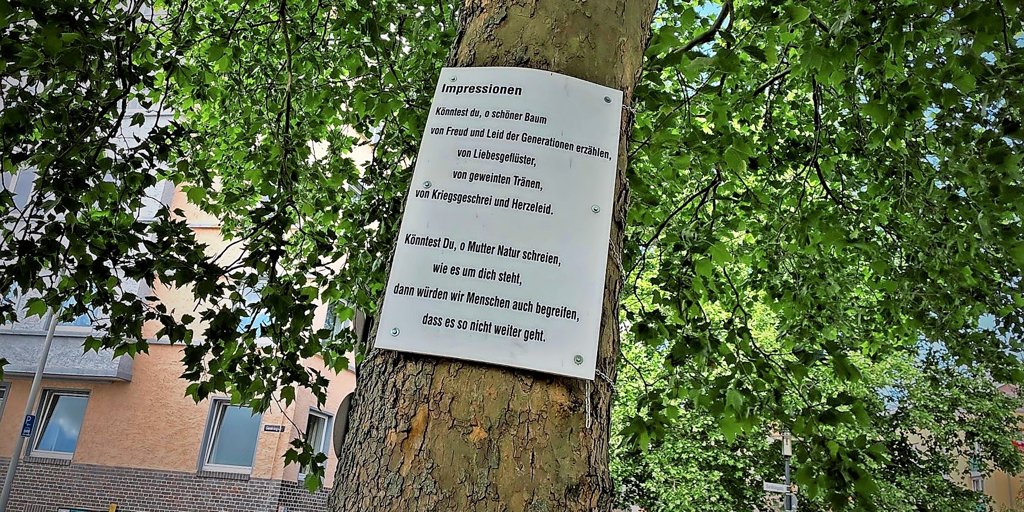 Impressionen
Könntest du, o schöner Baum
von Freud und Leid der Generationen erzählen,
von Liebesgeflüster,
von geweinten Tränen,
von Kriegsgeschrei und Herzeleid.
Könntest Du, o Mutter Natur schreien,
wie es um dich steht,
dann würden wir Menschen auch begreifen,
dass es so nicht weiter geht.